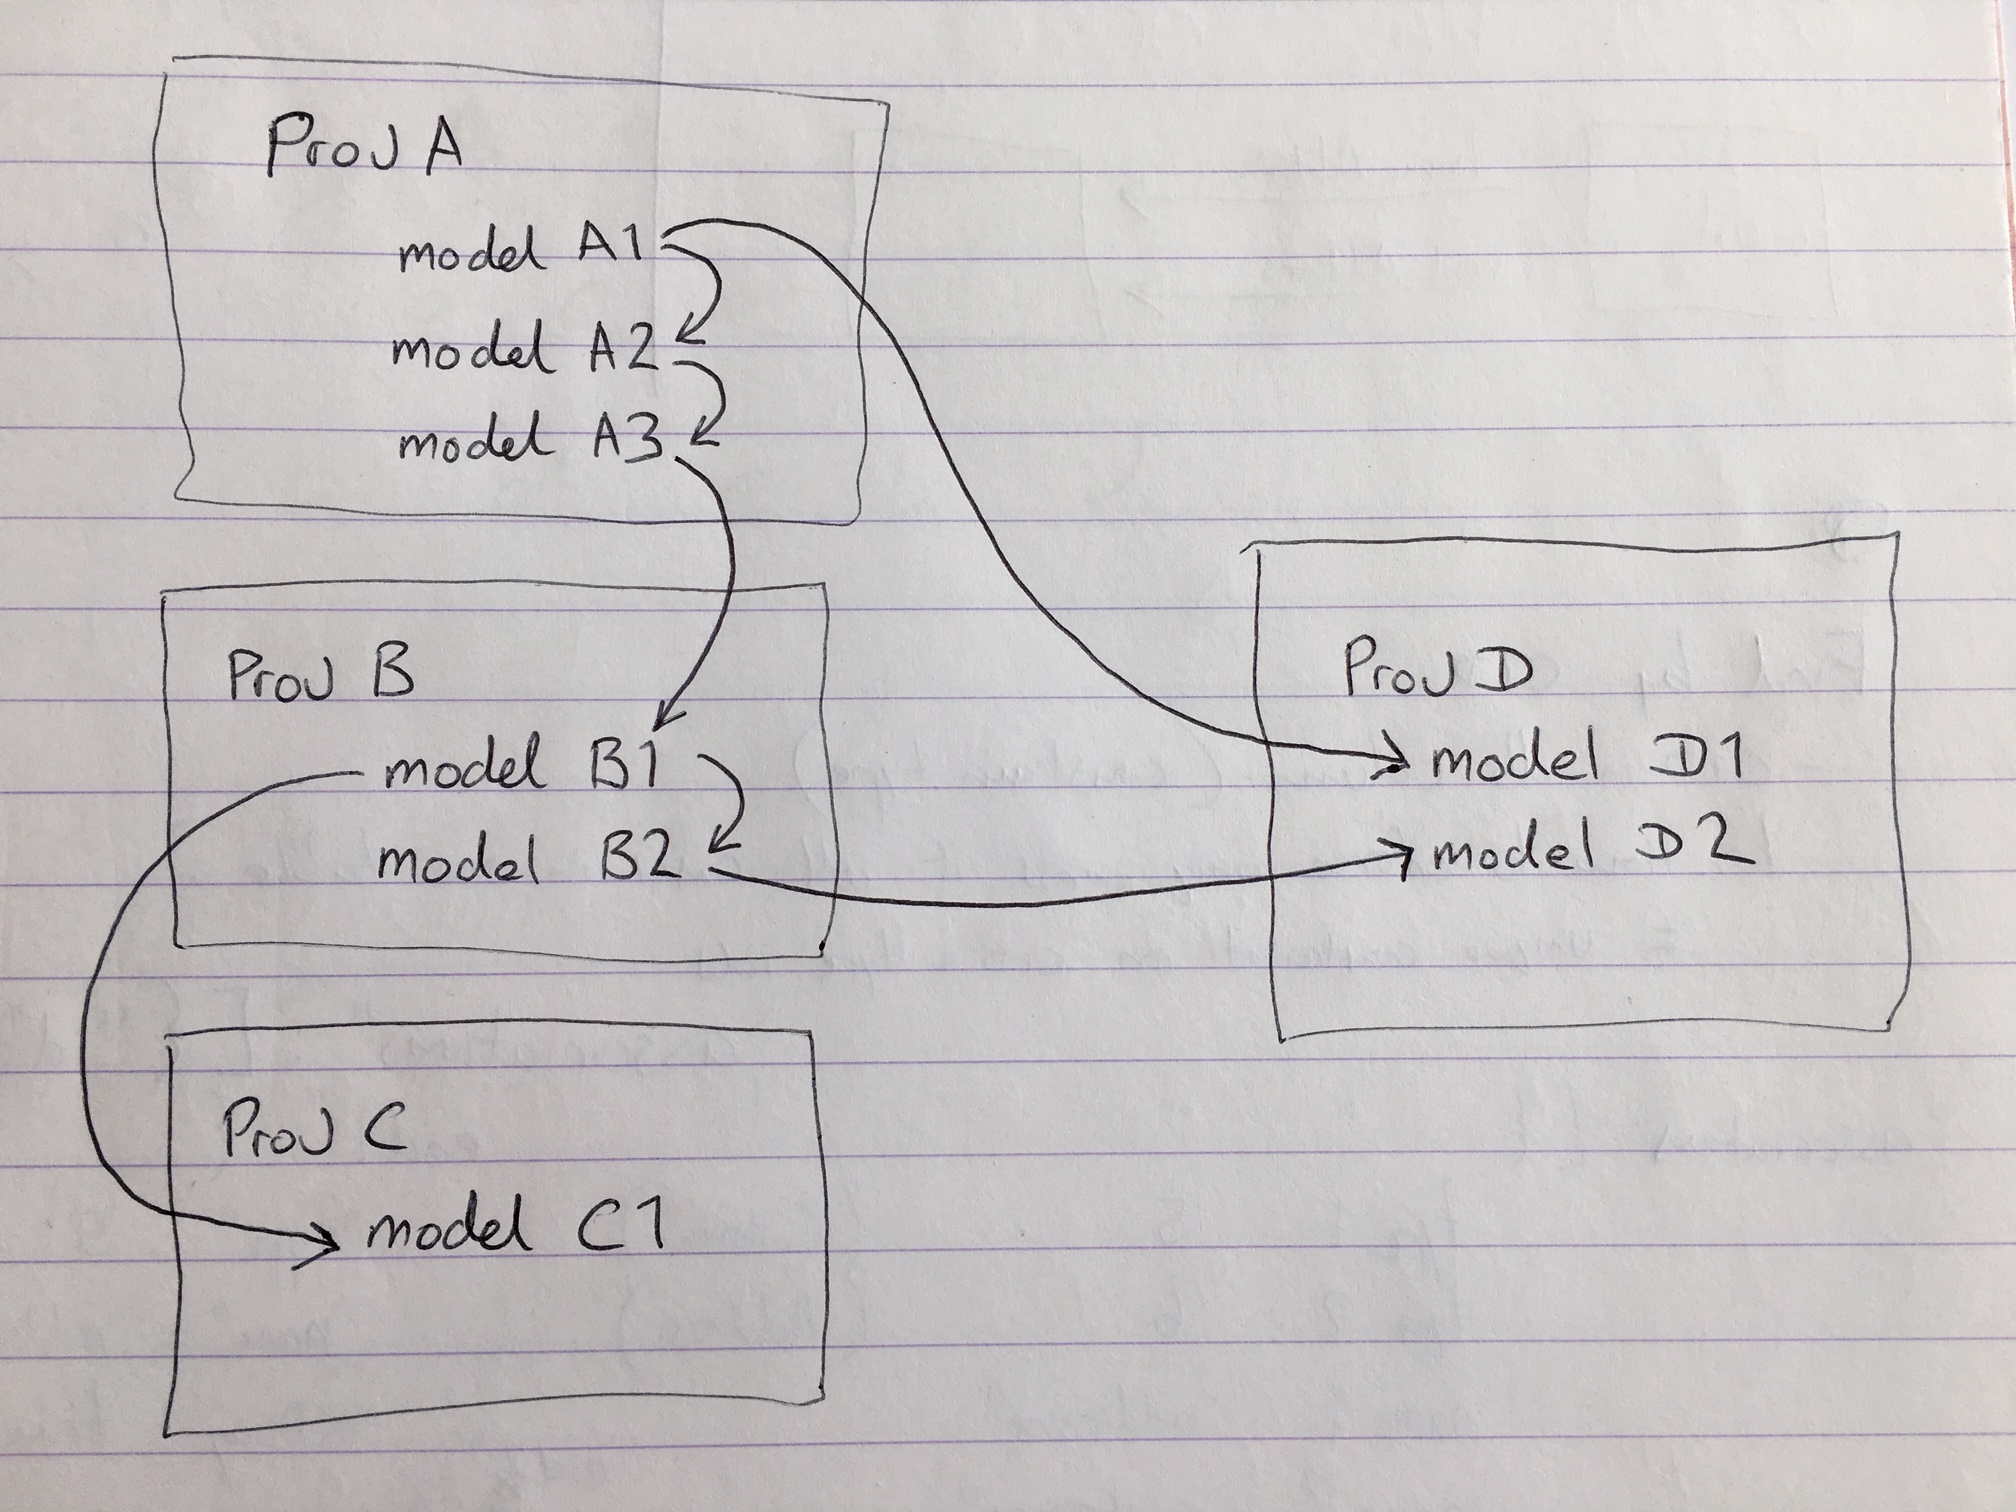 Proj A
model A1
model A2
model A3
Proj B
model B1
model B2
Proj C
model C1
Proj D
model D1
model D2